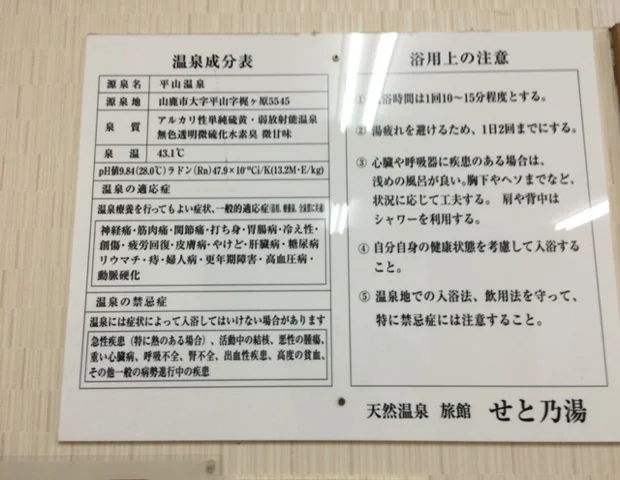 温泉成分表
源泉名 平山温泉
源泉地 山鹿市大字平山字梶ヶ原5545
泉質 アルカリ性単純硫黄・弱放射能温泉
無色透明微硫化水素臭 微甘味
泉温 43.1℃
pH値9.84(28.0℃)ラドン(Rn)47.9×10⁻¹⁰Ci/K(13.2M・E/kg)
温泉の適応症
温泉療養を行ってもよい症状、一般的適応症
神経痛・筋肉痛・関節痛・打ち身・胃腸病・冷え性・
創傷・疲労回復・皮膚病・やけど・肝臓病・糖尿病
リウマチ・痔・婦人病・更年期障害・高血圧病・
動脈硬化
温泉の禁忌症
温泉には症状によって入浴してはいけない場合があります
急性疾患(特に熱のある場合)、活動中の結核、悪性の腫瘍、
重い心臓病、呼吸不全、腎不全、出血性疾患、高度の貧血、
その他一般の病勢進行中の疾患
浴用上の注意
① 浴時間は1回10〜15分程度とする。
② 湯疲れを避けるため、1日2回までにする。
③ 心臓や呼吸器に疾患のある場合は、
浅めの風呂が良い。胸下やヘソまでなど、
状況に応じて工夫する。 肩や背中は
シャワーを利用する。
④ 自分自身の健康状態を考慮して入浴する
こと。
⑤ 温泉地での入浴法、飲用法を守って、
特に禁忌症には注意すること。
天然温泉 旅館 せと乃湯